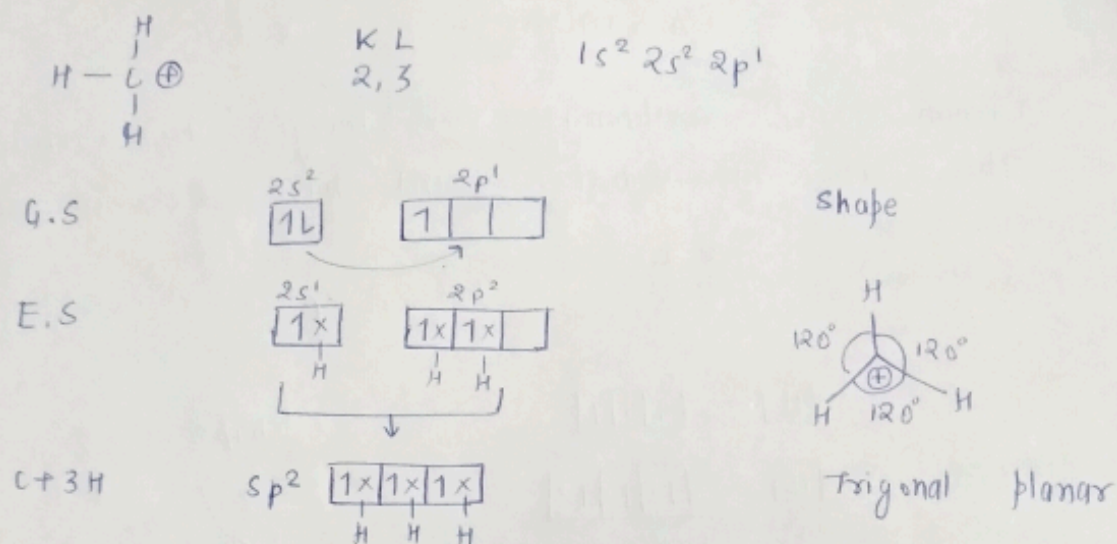 H
H — C ⊕
H
K L
2, 3
1s² 2s² 2p¹
G.S
2s²
1L
2p¹
1
Shape
E.S
2s¹
1×
H
2p²
1× 1×
H H
H
120° 120°
⊕
H 120° H
C+3H
sp² 1× 1× 1×
H H H
Trigonal planar